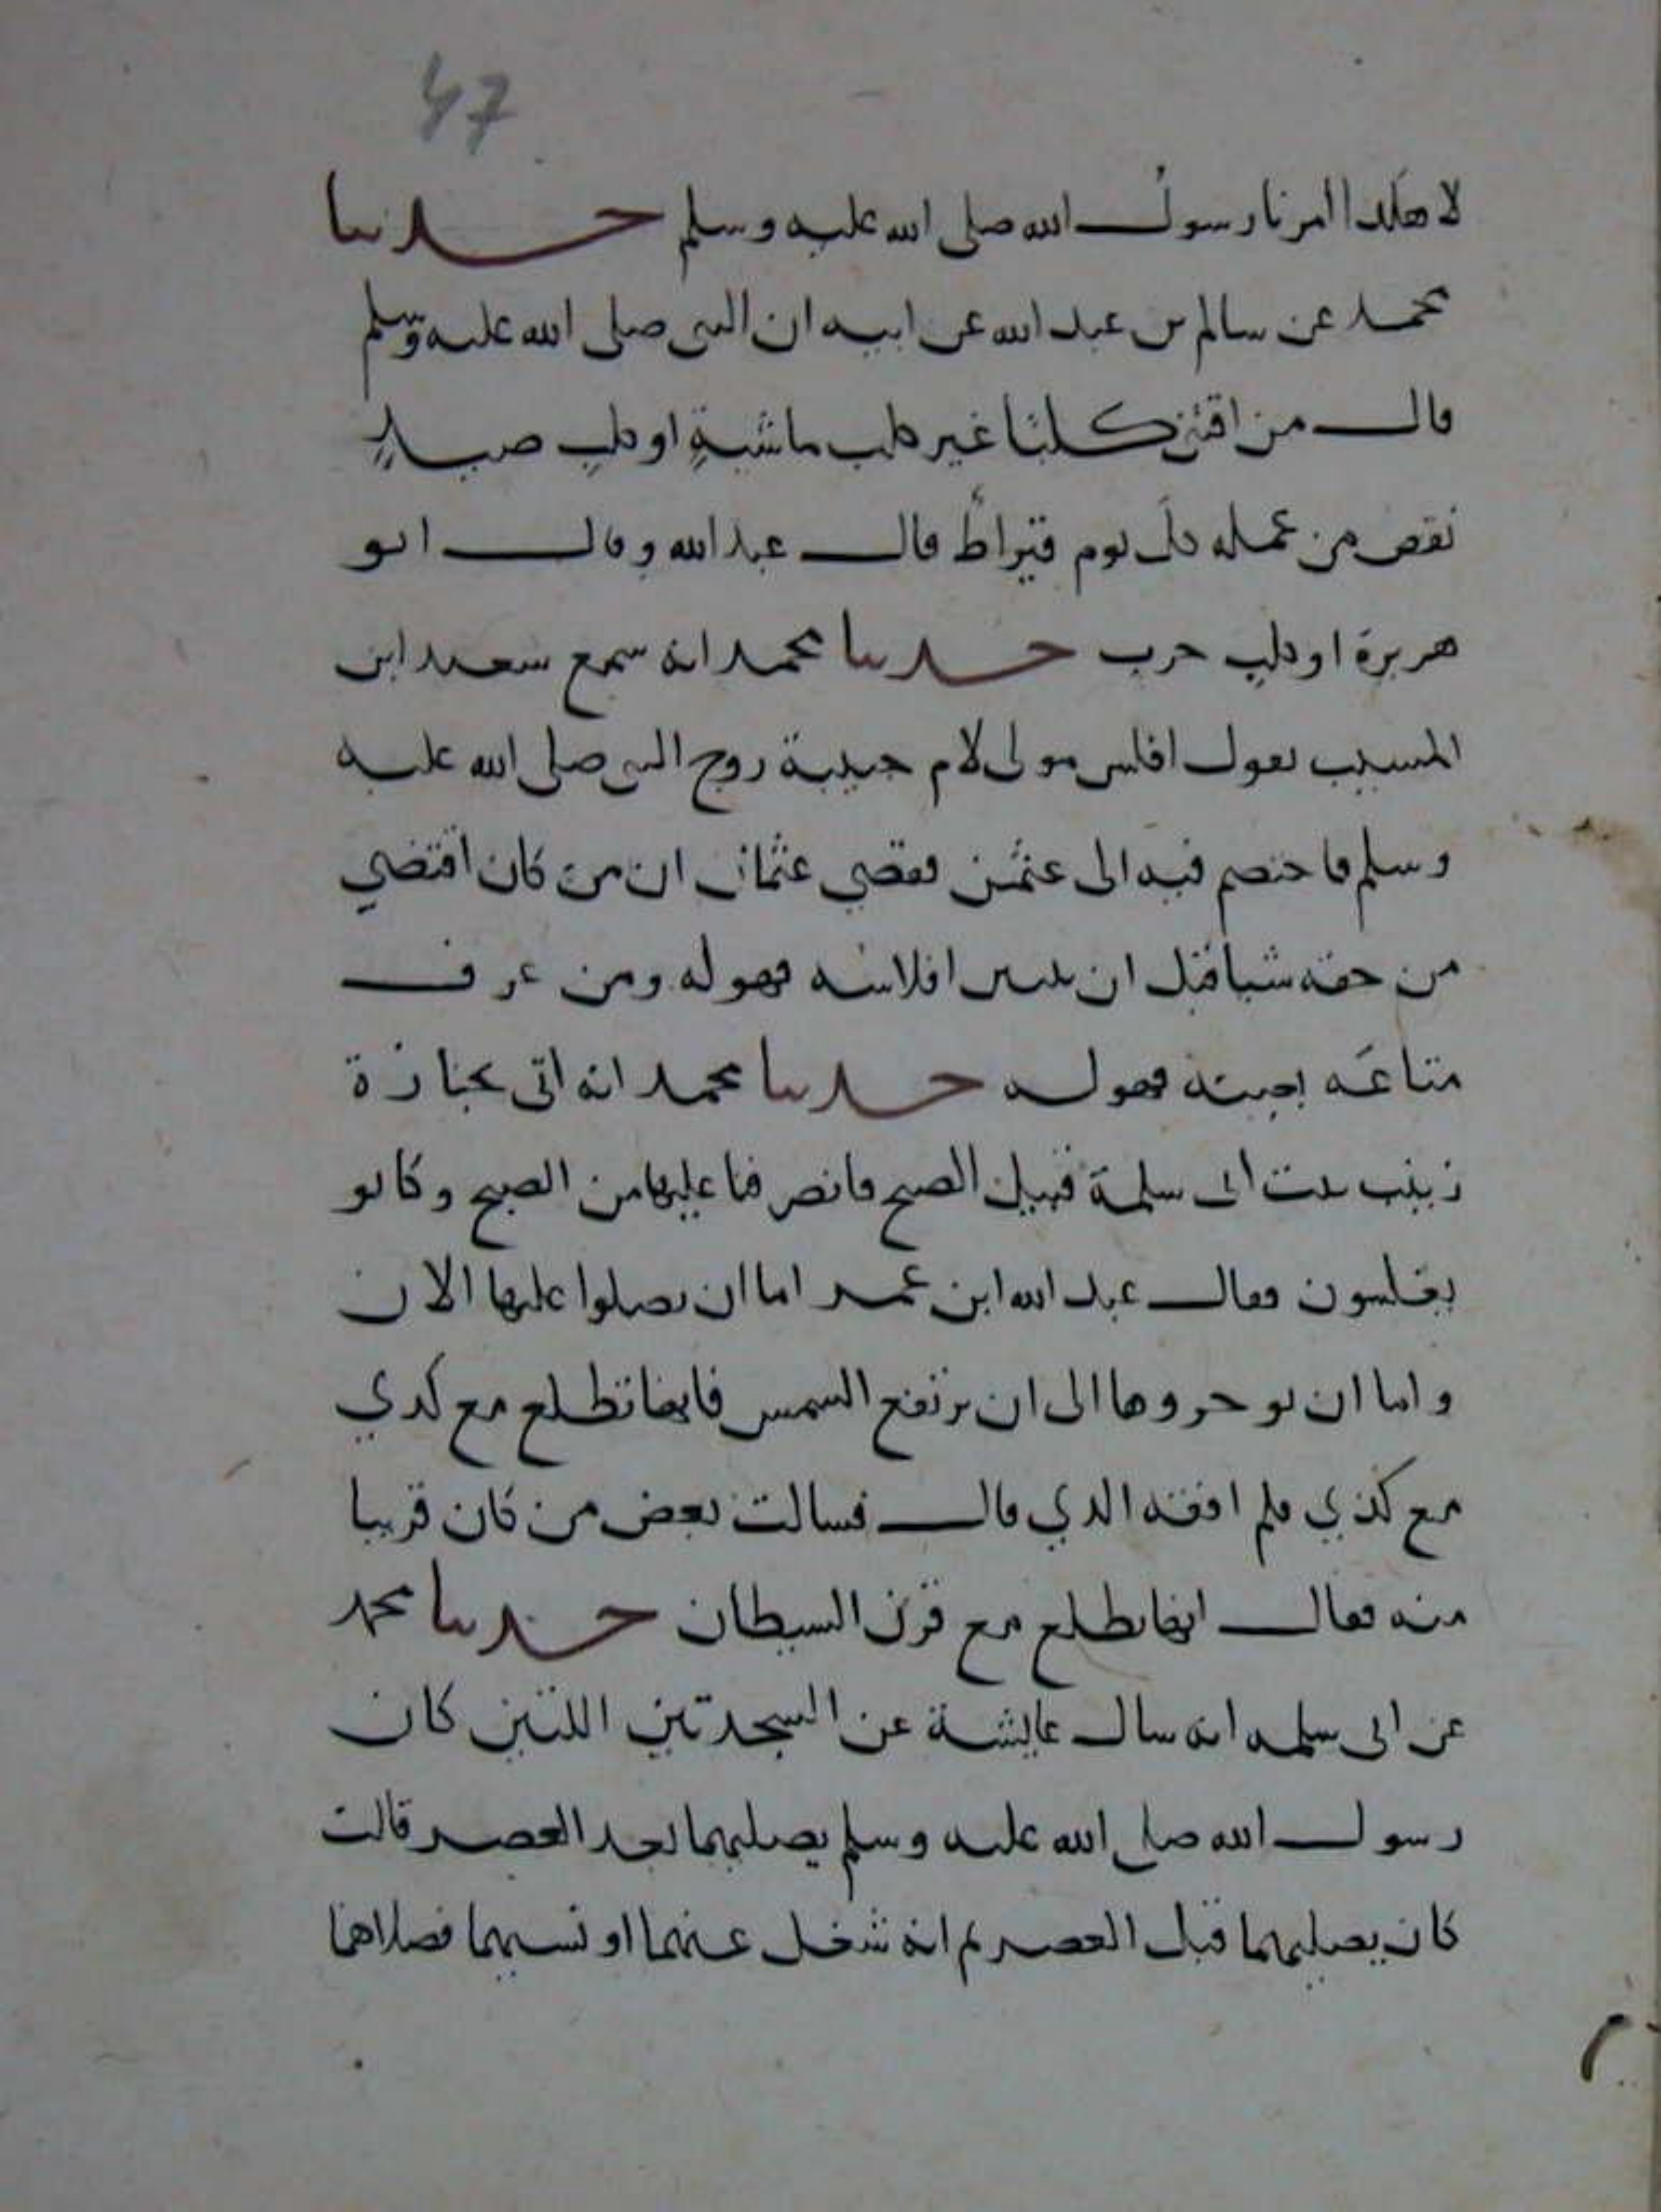 47
لا هكذا امرنا رسول الله صلى الله عليه وسلم حدثنا
محمد عن سالم بن عبد الله عن ابيه ان النبي صلى الله عليه وسلم
قال من اقتنى كلبا غير كلب ماشيةٍ او كلبِ صيدٍ
نقص من عمله كلَ يوم قيراطٌ قال عبد الله وقال ابو
هريرة او كلب حرب حدثنا محمد انه سمع سعيد ابن
المسيب يقول افلس مولى لام حبيبة زوج النبي صلى الله عليه
وسلم فاختصم فيه الى عثمن فقضى عثمان ان من كان اقتضي
من حقه شيا قبل ان يتبين افلاسه فهو له ومن عرف
متاعَه بعينه فهو له حدثنا محمد انه اتى بجنازة
زينب بنت ابى سلمة قبيل الصبح فانصرفنا عليها من الصبح وكانو
يغلسون فقال عبد الله ابن عمر اما ان تصلوا عليها الان
واما ان توخروها الى ان ترتفع الشمس فانها تطلع مع كذي
مع كذي فلم افقه الذي قال فسالت بعض من كان قريبا
منه فقال انها تطلع مع قرن الشيطان حدثنا محمد
عن ابى سلمه انه سال عايشة عن السجدتين اللتين كان
رسول الله صلى الله عليه وسلم يصليهما بعد العصر قالت
كان يصليهما قبل العصر ثم انه شغل عنهما او نسيهما فصلاهما